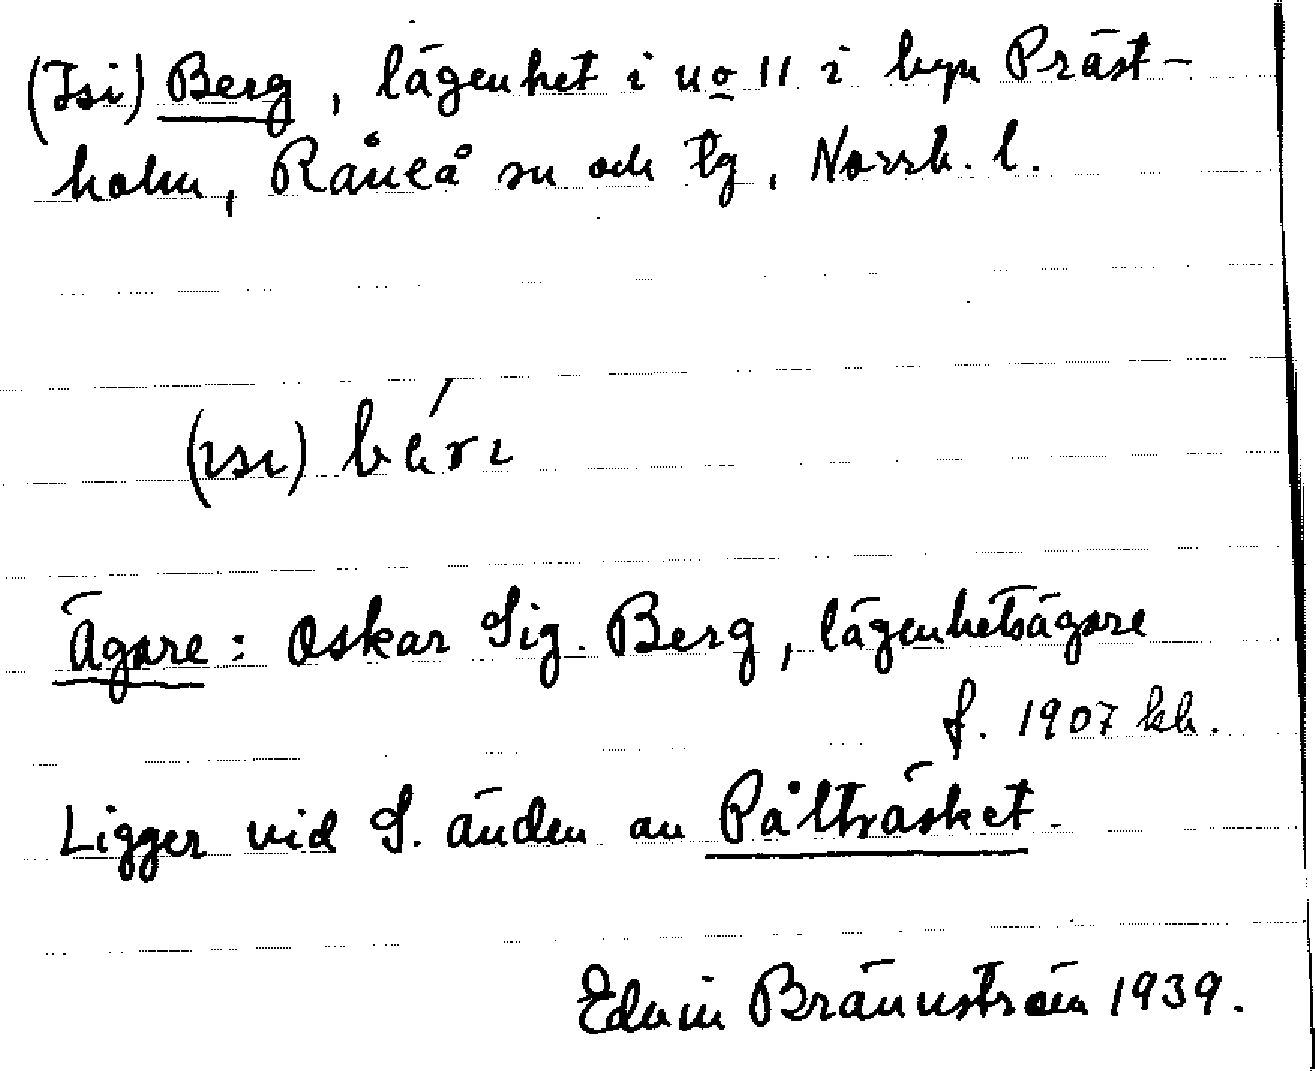 (Isi) Berg, lägenhet i no 11 i byn Präst-
holm, Råneå sn och tg, Norrb. l.
(ısı) bérı
Ägare: Oskar Sig. Berg, lägenhetsägare
f. 1907 kh.
Ligger vid S. änden av Pålträsket.
Edvin Brännström 1939.